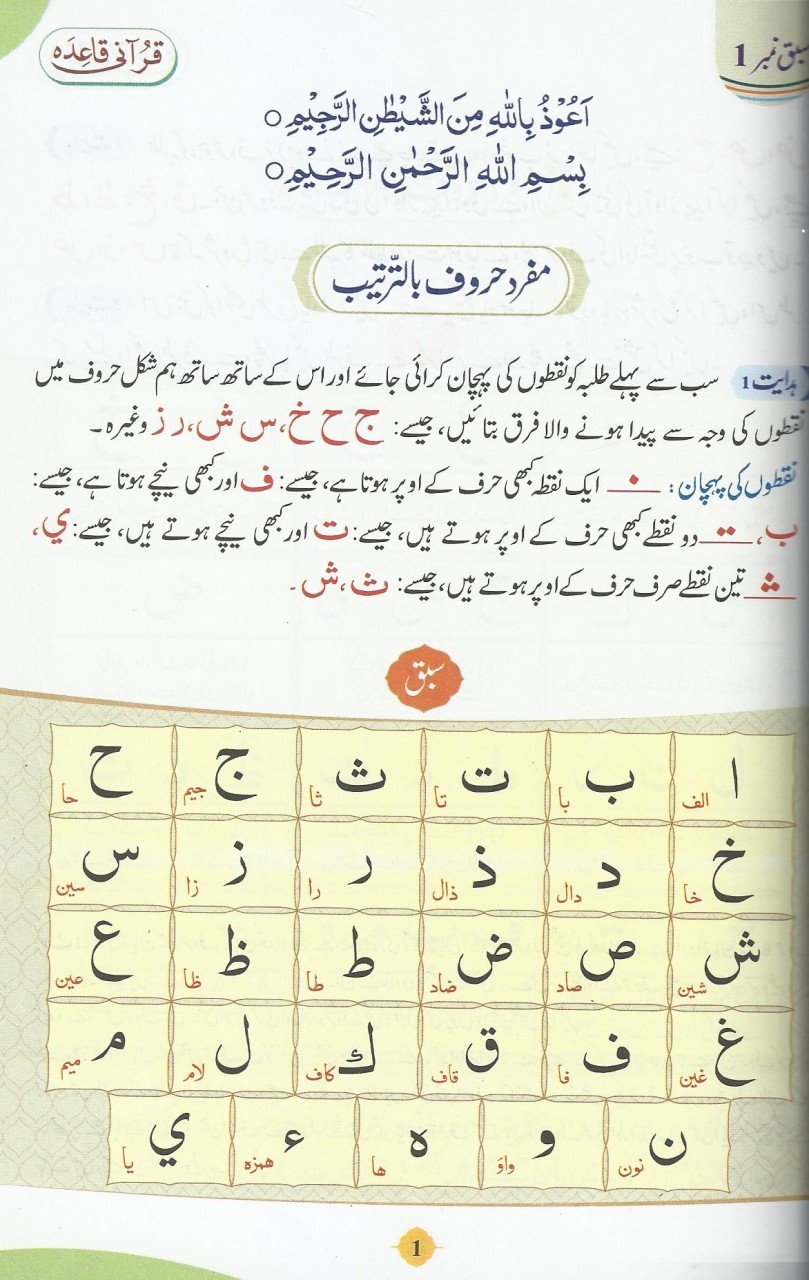 سبق نمبر 1
قرآنی قاعدہ
اَعُوْذُ بِاللهِ مِنَ الشَّيْطٰنِ الرَّجِيْمِ ○
بِسْمِ اللهِ الرَّحْمٰنِ الرَّحِيْمِ ○
مفرد حروف بالتّرتیب
ہدایت 1 سب سے پہلے طلبہ کو نقطوں کی پہچان کرائی جائے اور اس کے ساتھ ساتھ ہم شکل حروف میں
نقطوں کی وجہ سے پیدا ہونے والا فرق بتائیں، جیسے: ج ح خ، س ش، ر ز وغیرہ۔
نقطوں کی پہچان: ایک نقطہ کبھی حرف کے اوپر ہوتا ہے، جیسے: ف اور کبھی نیچے ہوتا ہے، جیسے:
ب، دو نقطے کبھی حرف کے اوپر ہوتے ہیں، جیسے: ت اور کبھی نیچے ہوتے ہیں، جیسے: ي،
تین نقطے صرف حرف کے اوپر ہوتے ہیں، جیسے: ث، ش۔
سبق
ا الف ب با ت تا ث ثا ج جیم ح حا
خ خا د دال ذ ذال ر را ز زا س سین
ش شین ص صاد ض ضاد ط طا ظ ظا ع عین
غ غین ف فا ق قاف ك کاف ل لام م میم
ن نون و واؤ ہ ھا ء ھمزہ ي یا
1